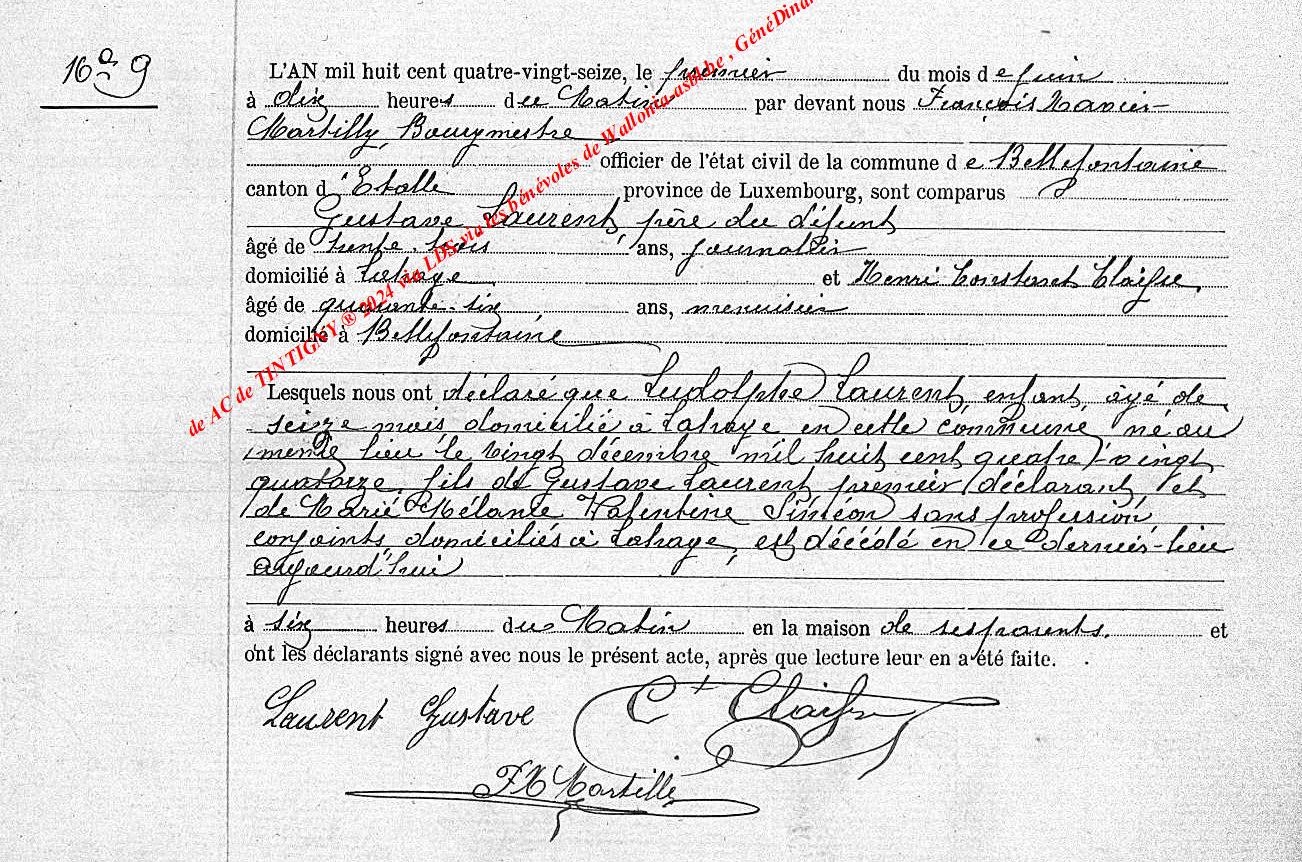 16 a 9
L'AN mil huit cent quatre-vingt-seize, le premier du mois de juin
à dix heures du Matin par devant nous François Xavier
Martilly, Bourgmestre
officier de l'état civil de la commune de Bellefontaine
canton d'Etalle province de Luxembourg, sont comparus
Gustave Laurent, père du défunt
âgé de trente-trois ans, journalier
domicilié à Lahaye et Henri Constant Claisse,
âgé de quarante-six ans, menuisier
domicilié à Bellefontaine
Lesquels nous ont déclaré que Ludolphe Laurent, enfant, âgé de
seize mois domicilié à Lahaye en cette commune, né au
même lieu le vingt décembre mil huit cent quatre-vingt
quatorze, fils de Gustave Laurent premier déclarant, et
de Marie Mélanie Valentine Siméon sans profession,
conjoints domiciliés à Lahaye, est décédé en ce dernier lieu
aujourd'hui
à six heures du Matin en la maison de ses parents. et
ont les déclarants signé avec nous le présent acte, après que lecture leur en a été faite.
Laurent Gustave Ct Claisse
FX Martilly
de AC de TINTIGNY ® 2024 via LDS via les bénévoles de Wallonia asbl be , GénéDinan